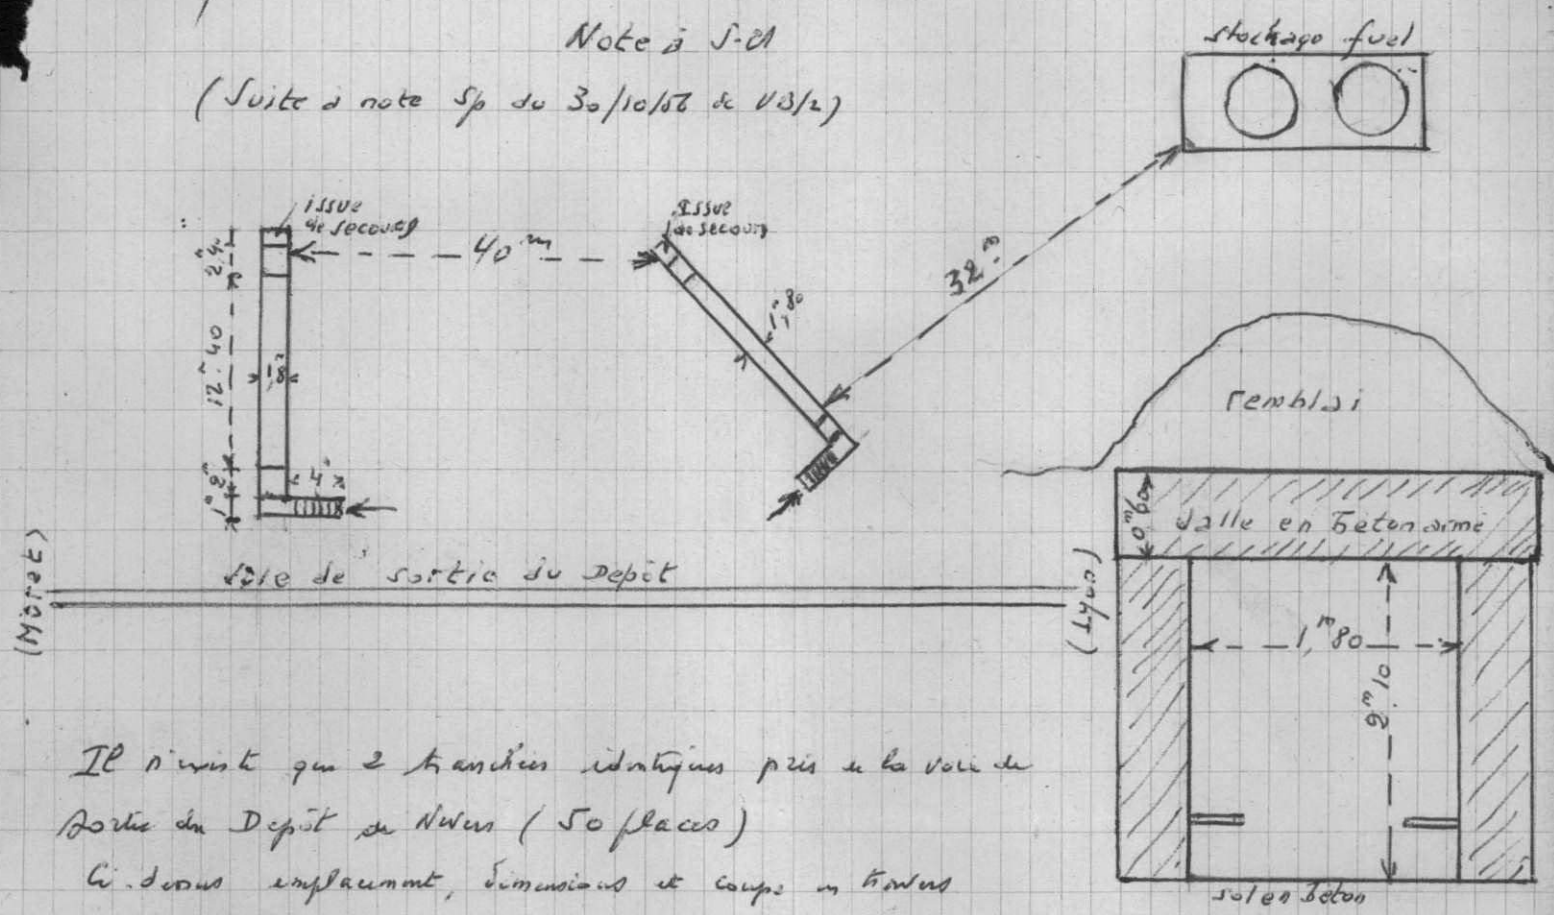 Note à S-et
(Suite à note Sp du 30/10/56 de VB/2)
stockage fuel
issue
de secours
40 m
issue
de secours
32 m
1,m80
2m4
12m40
1,8
2m
1m
4m
remblai
0m60
dalle en beton armé
1,m80
2m10
sol en béton
voie de sortie du Depôt
(Moret)
(Lyon)
Il n'existe que 2 tranchées identiques près de la voie de
sortie du Depôt de Nevers (50 places)
Ci-dessus emplacement, dimensions et coupe en travers